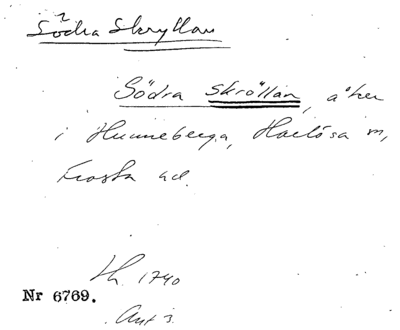 Södra Skryllan
Södra skröllan, åker
i Hunneberga, Harlösa sn,
Frosta hd.
Lh. 1740
Nr 6769.
Akt 3.